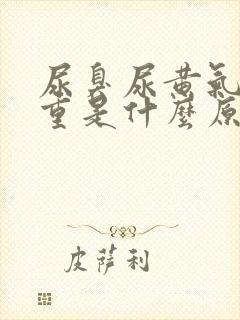 尿臭尿黄氣
重是什麼原
皮薩利